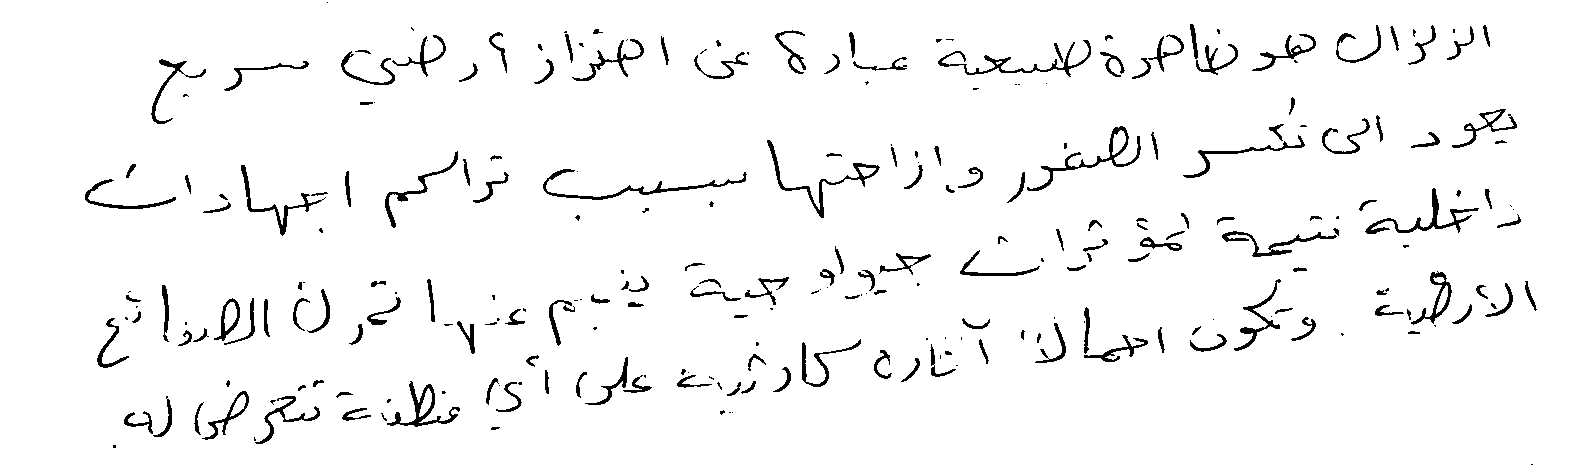 الزلزال هو ظاهرة طبيعية عبارة عن اهتزاز أرضي سريع
يعود الى تكسر الصخور وإزاحتها بسبب تراكم اجهادات
داخلية نتيجة لمؤثرات جيولوجية ينجم عنها تحرك الصفائح
الأرضية. وتكون اجمالا آثاره كارثية على أي منطقة تتعرض له.